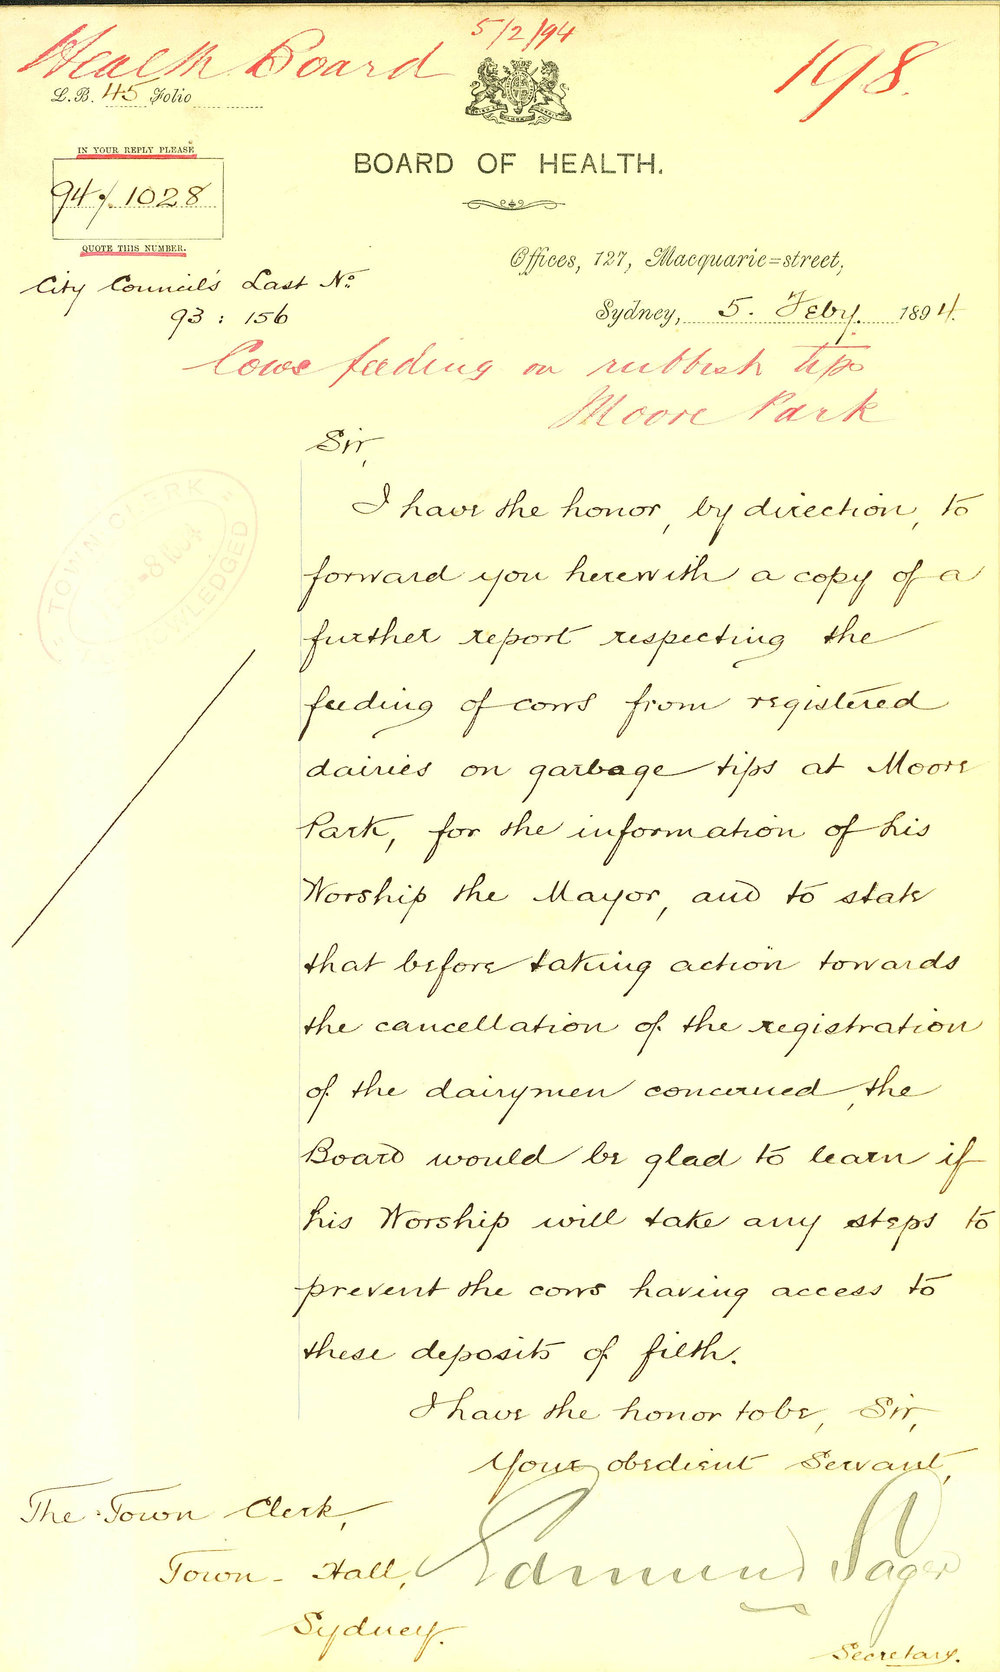 Health Board
5/2/94
198.
L.B. 45 Folio
BOARD OF HEALTH.
IN YOUR REPLY PLEASE
94/. 1028
QUOTE THIS NUMBER.
City Council's Last No.
93 : 156
Offices, 127, Macquarie=street,
Sydney, 5. Feby. 1894.
Cows feeding on rubbish tips
Moore Park
Sir,
TOWN CLERK
I have the honor, by direction, to
forward you herewith a copy of a
further report respecting the
feeding of cows from registered
dairies on garbage tips at Moore
Park, for the information of his
Worship the Mayor, and to state
that before taking action towards
the cancellation of the registration
of the dairymen concerned, the
Board would be glad to learn if
his Worship will take any steps to
prevent the cows having access to
these deposits of filth.
I have the honor to be, Sir,
Your obedient Servant,
Edmund Sager
Secretary.
The Town Clerk,
Town - Hall,
Sydney.